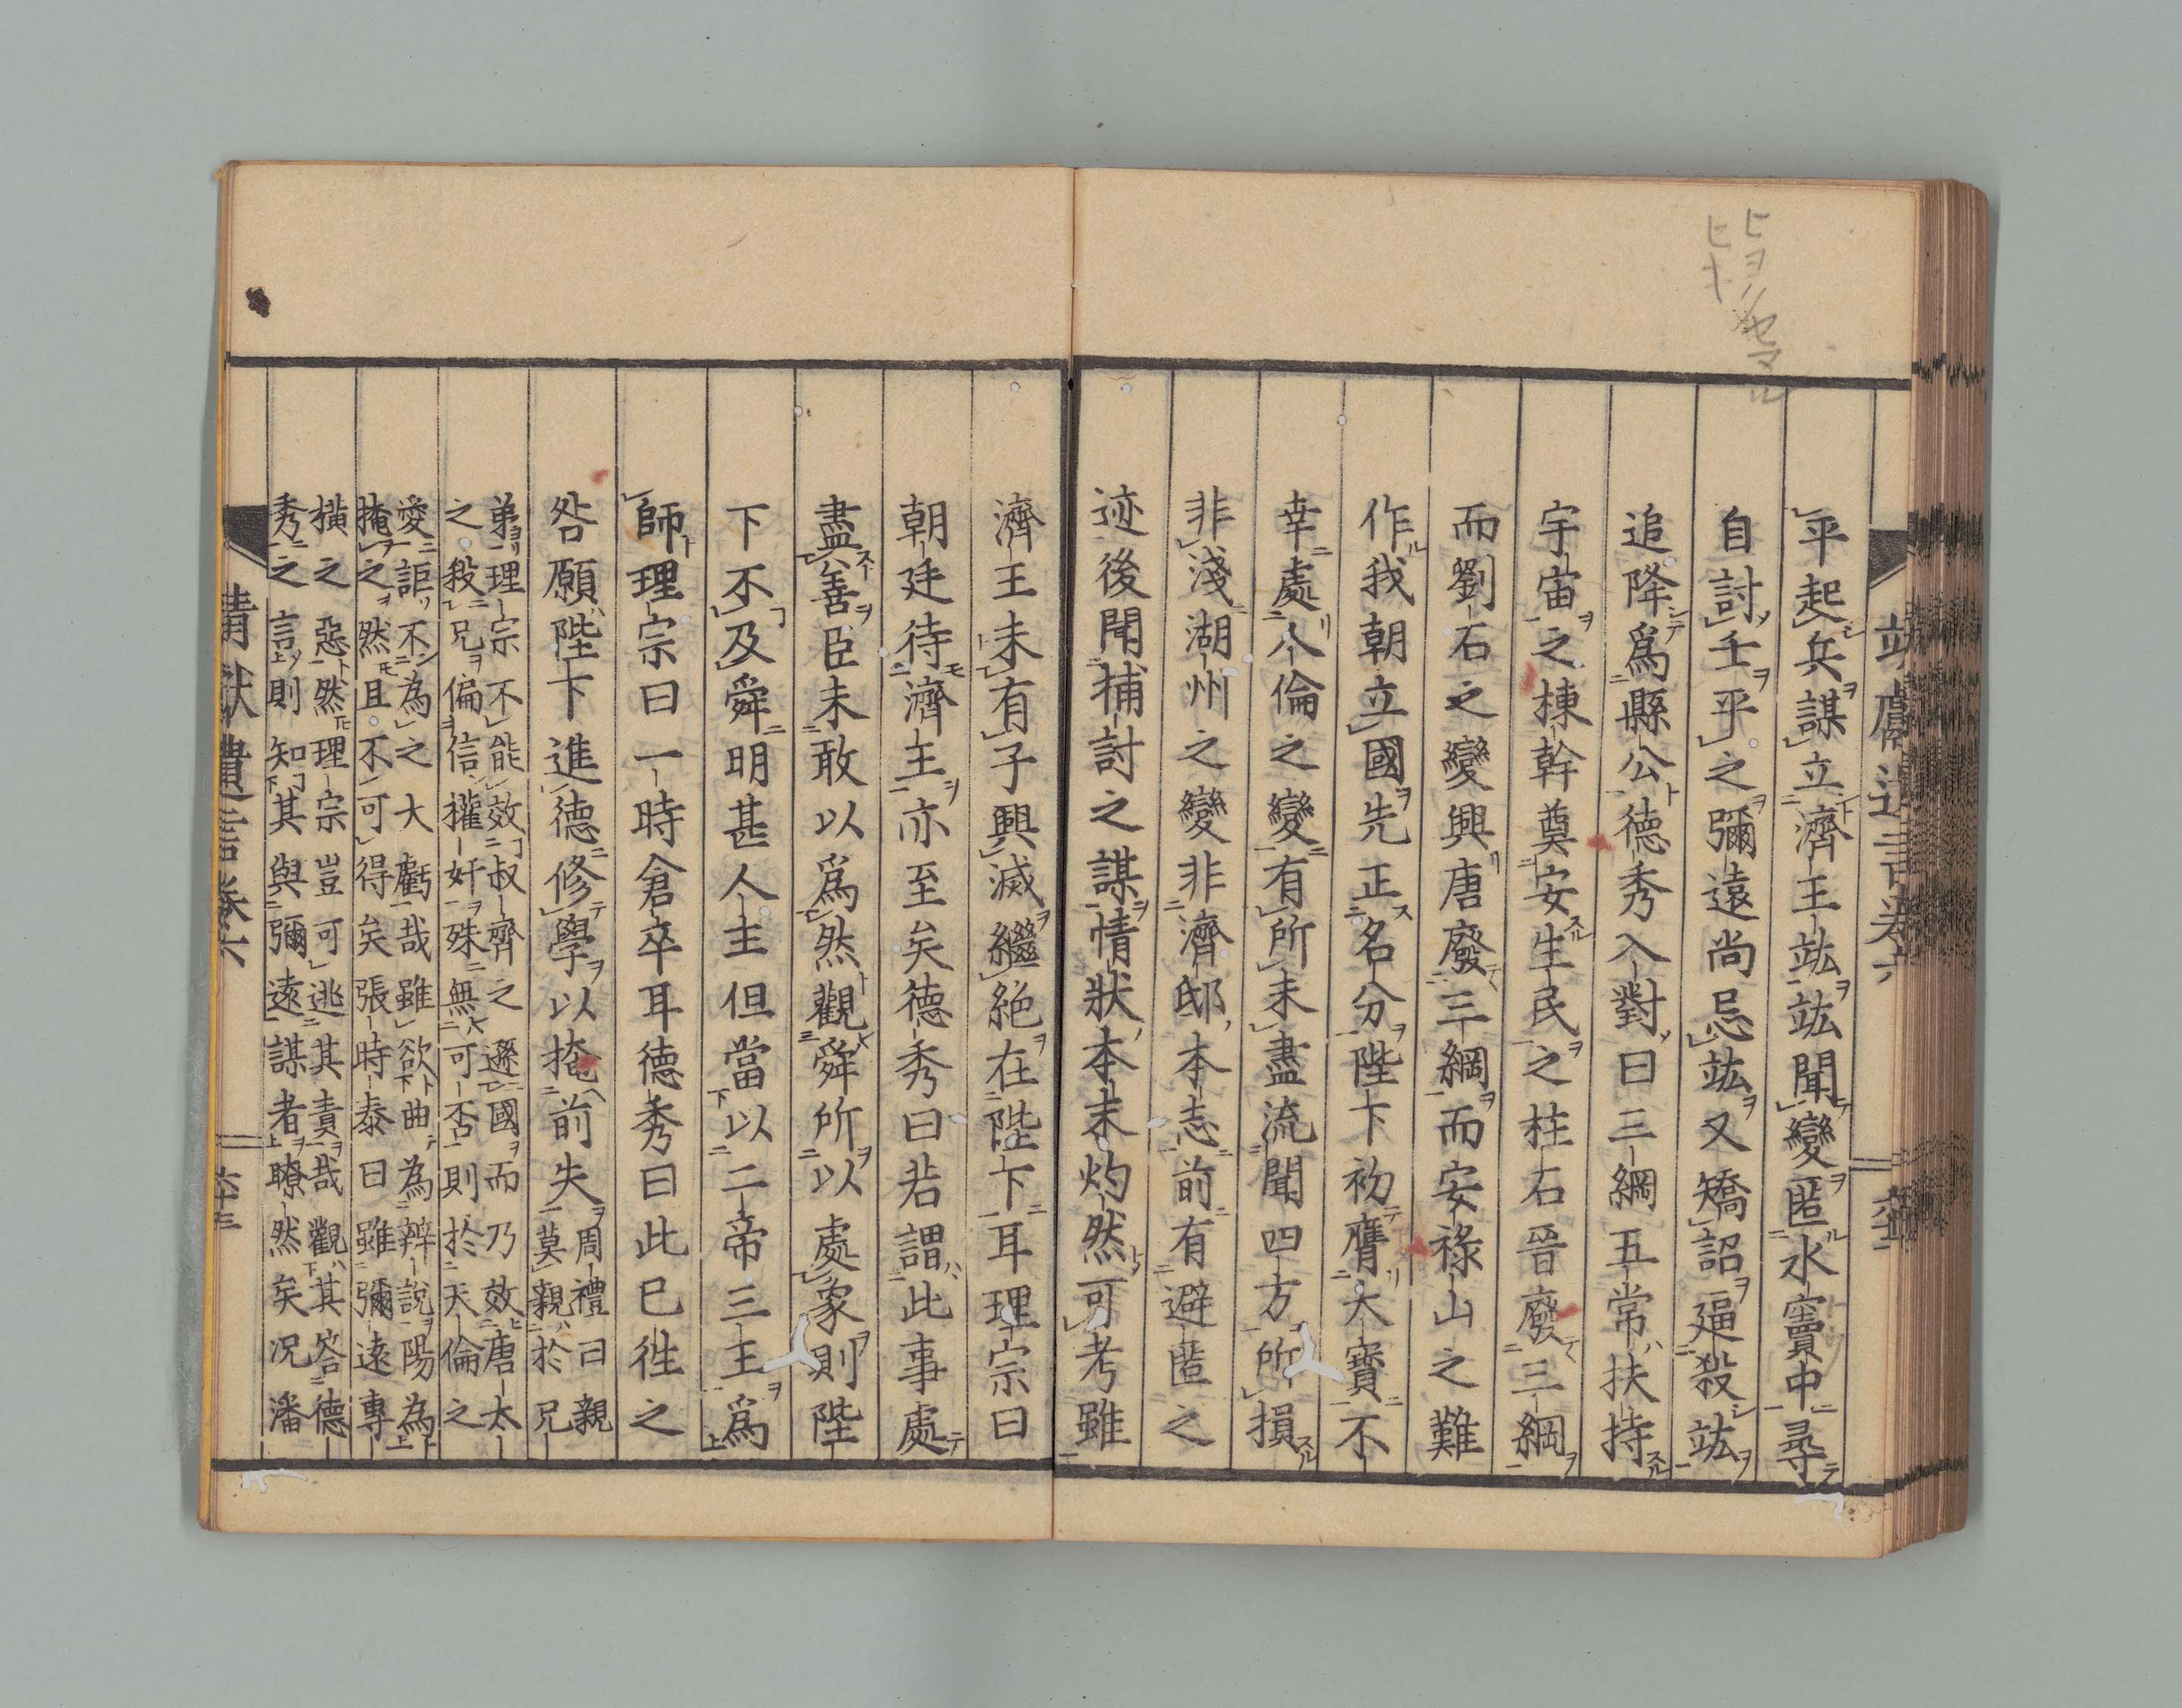 ヒヲ
セマル
ヒキ
平起兵謀立濟王竑竑聞變匿水竇中尋
自討壬平之彌遠尚忌竑又矯詔逼殺竑
追降爲縣公德秀入對曰三綱五常扶持
宇宙之棟幹奠安生民之柱石晉廢三綱
而劉石之變興唐廢三綱而安祿山之難
作我朝立國先正名分陛下初膺大寶不
幸處人倫之變有所未盡流聞四方所損
非淺湖州之變非濟邸本志前有避匿之
迹後聞捕討之謀情狀本末灼然可考雖
濟王未有子興滅繼絶在陛下耳理宗曰
朝廷待濟王亦至矣德秀曰若謂此事處
盡善臣未敢以爲然觀舜所以處象則陛
下不及舜明甚人主但當以二帝三王爲
師理宗曰一時倉卒耳德秀曰此已徃之
咎願陛下進德修學以掩前失周禮曰親
莫親於兄
弟理宗不能效叔齊之遜國而乃效唐太
之殺兄偏信權奸殊無可否則於天倫之
愛詎不為之大虧哉雖欲曲為辨說陽為
掩之然且不可得矣張時泰曰雖彌遠專
橫之惡然理宗豈可逃其責哉觀其答德
秀之言則知其與彌遠謀者瞭然矣况潘
靖獻遺言卷六